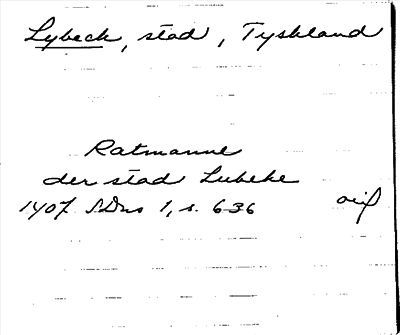 Lybeck, stad, Tyskland
Ratmanne
der stad Lubeke
1407 SDns 1, s. 636 orig